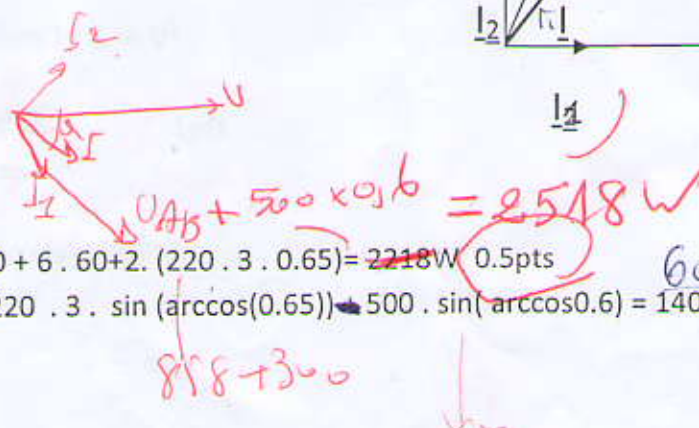 I2
I2 I
U
I
I1
UAB + 500 x 0,6 = 2518 W
0 + 6 . 60+2. (220 . 3 . 0.65)= 2218W 0.5pts
220 . 3 . sin (arccos(0.65)) 500 . sin( arccos0.6) = 140
858+300